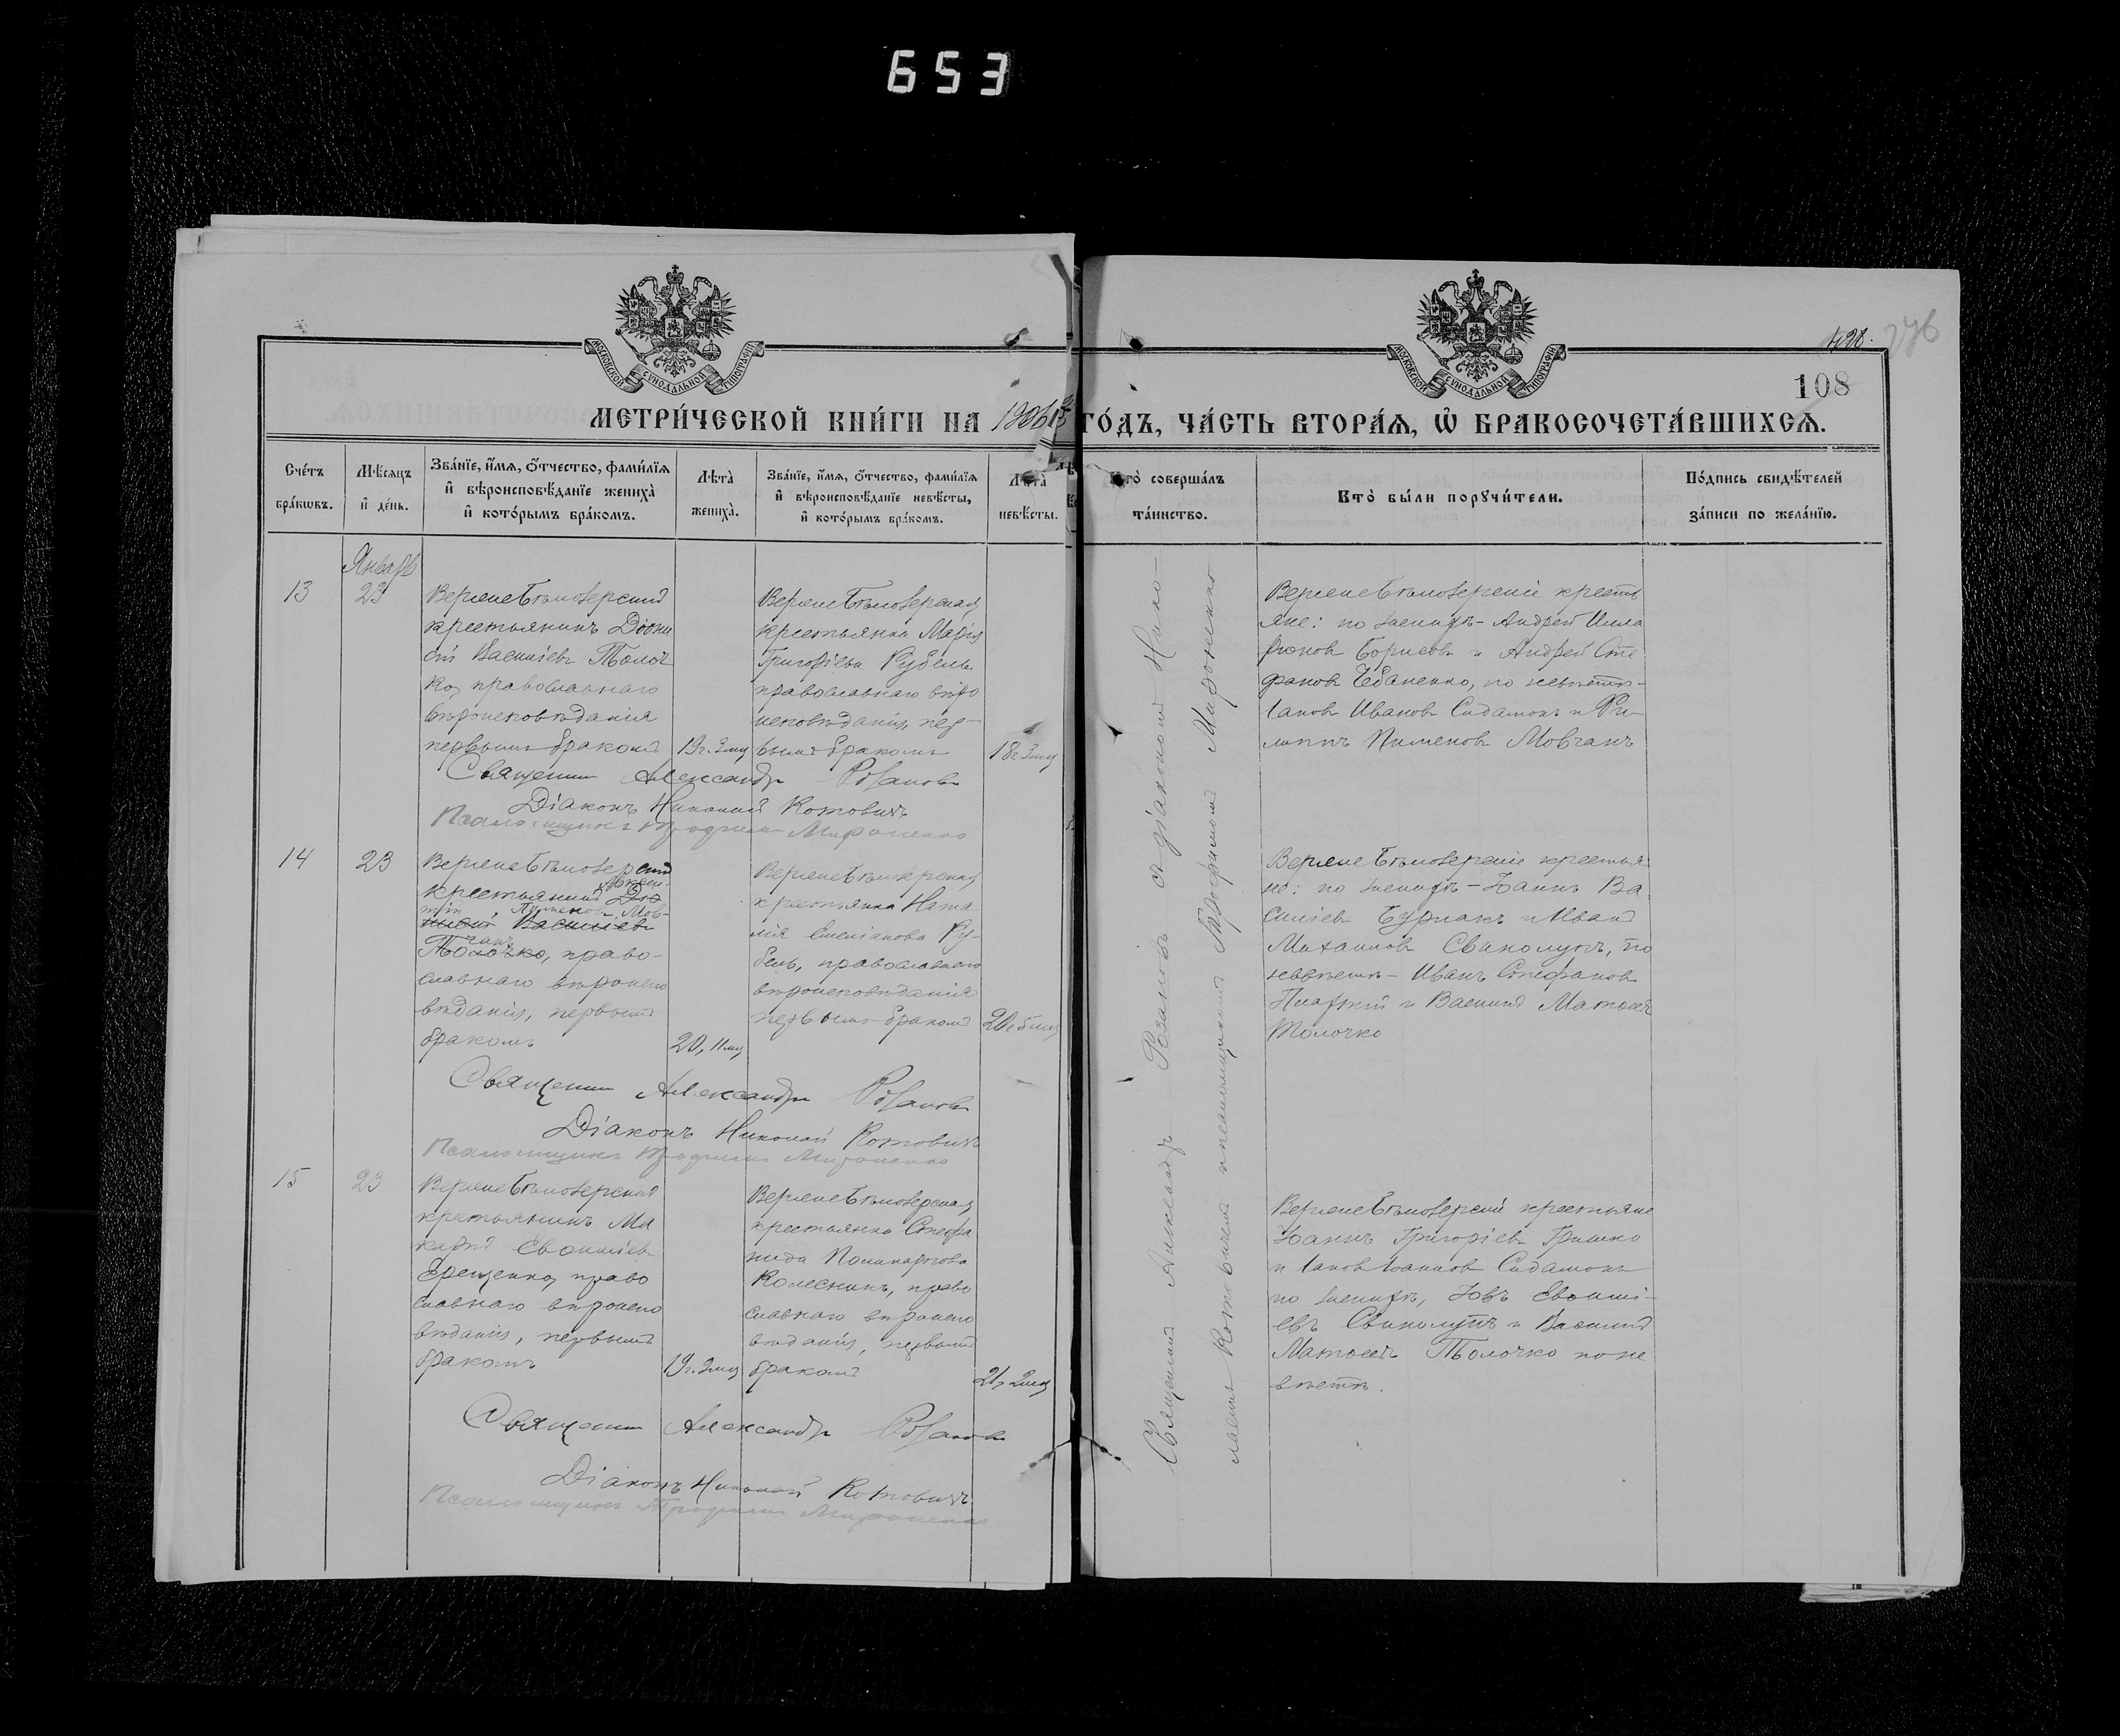 653
МОСКОВСКОЙ СѴНОДАЛЬНОЙ ТИПОГРАФІИ
МОСКОВСКОЙ СѴНОДАЛЬНОЙ ТИПОГРАФІИ
276
108
МЕТРИ́ЧЕСКОЙ КНИ́ГИ НА 1906 ГО́ДЪ, ЧА́СТЬ ВТОРА́Ѧ, Ѽ БРАКОСОЧЕТА́ВШИХСѦ.
Сче́тъ бра́кѡвъ.
Мѣ́сѧцъ и҆ де́нь.
Зва́нїе, и҆́мѧ, ѻ҆́тчество, фами́лїѧ
и҆ вѣроисповѣ́данїе жениха̀
и҆ кото́рымъ бра́комъ.
Лѣ́та̀ жениха̀.
Зва́нїе, и҆́мѧ, ѻ҆́тчество, фами́лїѧ
и҆ вѣроисповѣ́данїе невѣ́сты,
и҆ кото́рымъ бра́комъ.
Лѣ́та̀ невѣ́сты.
Кто̀ соверша́лъ
та́инство.
Кто̀ бы́ли порꙋчи́тели.
По́дпись свидѣ́телей
за́писи по жела́нїю.
Январь
13
23
Верхнебѣлозерскій
крестьянинъ Діони
сій Васильевъ Толоч
ко, православнаго
вѣроисповѣданія
первымъ бракомъ
19 г. 3 мц
Верхнебѣлозерская
крестьянка Марія
Григорьева Рубель
православнаго вѣро
исповѣданія, пер-
вымъ бракомъ
18 г 3 мц
Верхнебѣлозерскіе крестья
яне: по женихѣ - Андрей
Борисовъ и Андрей Сте
фановъ Чебаненко, по невѣстѣ -
Іаковъ Ивановъ Сидамонъ и Фи-
липпъ Пименовъ Мовчанъ
Священникъ Александръ Розановъ
Діаконъ Николай Котовичъ
Псаломщикъ Трофимъ Мироненко
14
23
Верхнебѣлозерскій
крестьянинъ Діо
Авксен-
тій Пименовъ Мов-
нисій Васильевъ
чанъ
Толочко, право-
славнаго вѣроиспо
вѣданія, первымъ
бракомъ
20, 11 мц
Верхнебѣлозерская
крестьянка Ната
лія Степанова Ру-
бель, православнаго
вѣроисповѣданія
первымъ бракомъ
20 г 5 мц
Верхнебѣлозерскіе крестья
не: по женихѣ - Іоаннъ Ва
сильевъ Бурлакъ и Иванъ
Михаиловъ Свинолупъ, по
невѣстѣ - Иванъ Стефановъ
и Василій Матвеевъ
Толочко
Священникъ Александръ Розановъ
Діаконъ Николай Котовичъ
Псаломщикъ Трофимъ Мироненко
15
23
Верхнебѣлозерскій
крестьянинъ Ма
карій
Ерещенко, право
славнаго вѣроиспо
вѣданія, первымъ
бракомъ
19 г. 3 мц
Верхнебѣлозерская
крестьянка Стефа
нида Поликарпова
Колесникъ, право
славнаго вѣроиспо
вѣданія, первымъ
бракомъ
21, 2 мц
Верхнебѣлозерскіе крестьяне
Іоаннъ Григорьевъ Гришко
и Іаковъ Іоанновъ Сидамонъ
по женихѣ, Іовъ
евъ Свинолупъ и Василій
Матвеевъ Толочко по не
вѣстѣ.
Священникъ Александръ Розановъ
Діаконъ Николай Котовичъ
Псаломщикъ Трофимъ Мироненко
Священникъ Александръ Розановъ съ діакономъ Нико-
лаемъ Котовичемъ и псаломщикомъ Трофимомъ Мироненко